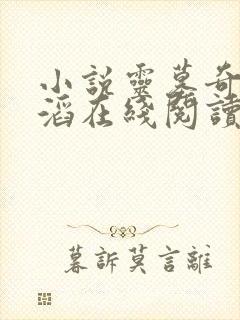 小說靈墓奇
滔在綫閱讀
暮訴莫言離